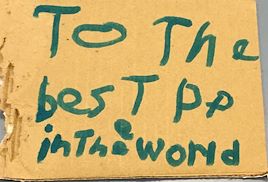 To The
best pp
in the world